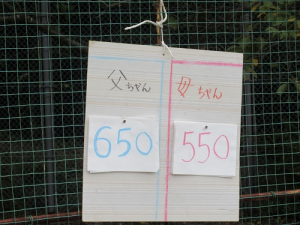 父ちゃん
650
母ちゃん
550